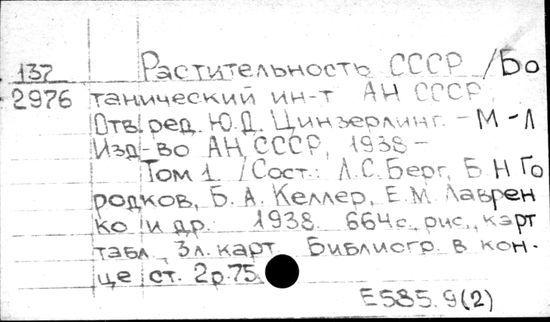 137 Растительность СССР /Бо
2976 танический ин-т АН СССР.
Отв. ред. Ю.Д. Цинзерлинг. - М-Л
Изд-во АН СССР, 1938-
Том 1. /Сост.: Л.С. Берг, Б Н Го
родков, Б. А. Келлер, Е.М. Лаврен
ко и др. 1938. 664с., рис., карт
табл., 3л. карт. Библиогр. в кон-
це ст. 2р.75.
Е585.9(2)